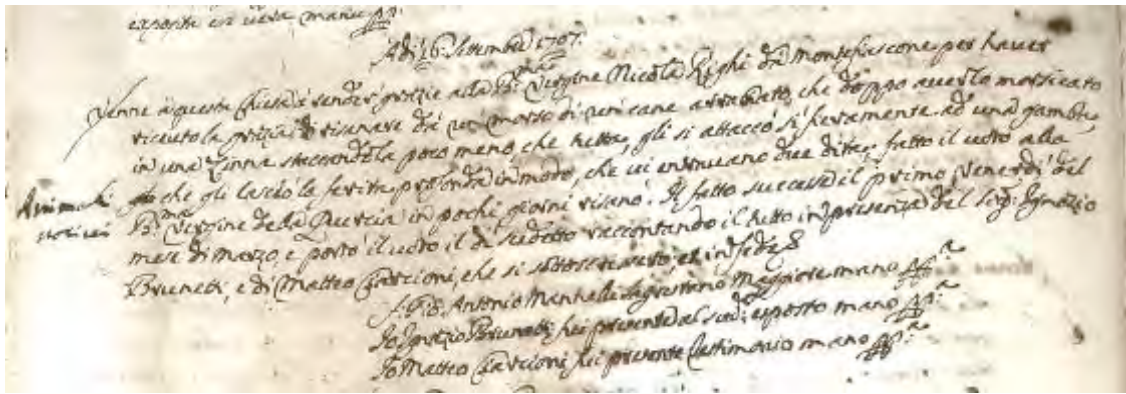 esposte in uera, manu pp.
Adi 16. Settembre 1707.
Venne à questa Chiesa à render, grazie alla B.ma Vergine Nicola Righi dà Montefiascone, per hauer
riceuto la grazia di risanare dà un morso di un cane arrabiato, che doppo auerlo morsicato
in una Zinna staccandola poco meno, che tutta, gli si attaccò si fieramente, ad una gamba,
che gli lasciò la ferita, profonda in modo, che ui entrauano due dita, fatto il uoto alla
Animali
nociui
B.ma Vergine della Quercia in pochi, giorni risanò. Il fatto successe il primo, Venerdì del
mese di marzo, e portò il uoto il dì sudetto raccontando il tutto in presenza del Sig.r Ignazio
Brunetti, e di Matteo Ciarcioni, che si sottoscriuerò, et in fede &
f. G. B. Antonio Mantelli Sagrestano Maggiore mano pp.a
Io Ignazio Brunetti, fui presente al sud.o esposto mano pp.a
Io Matteo Ciarcioni, fui presente testimonio mano pp.a